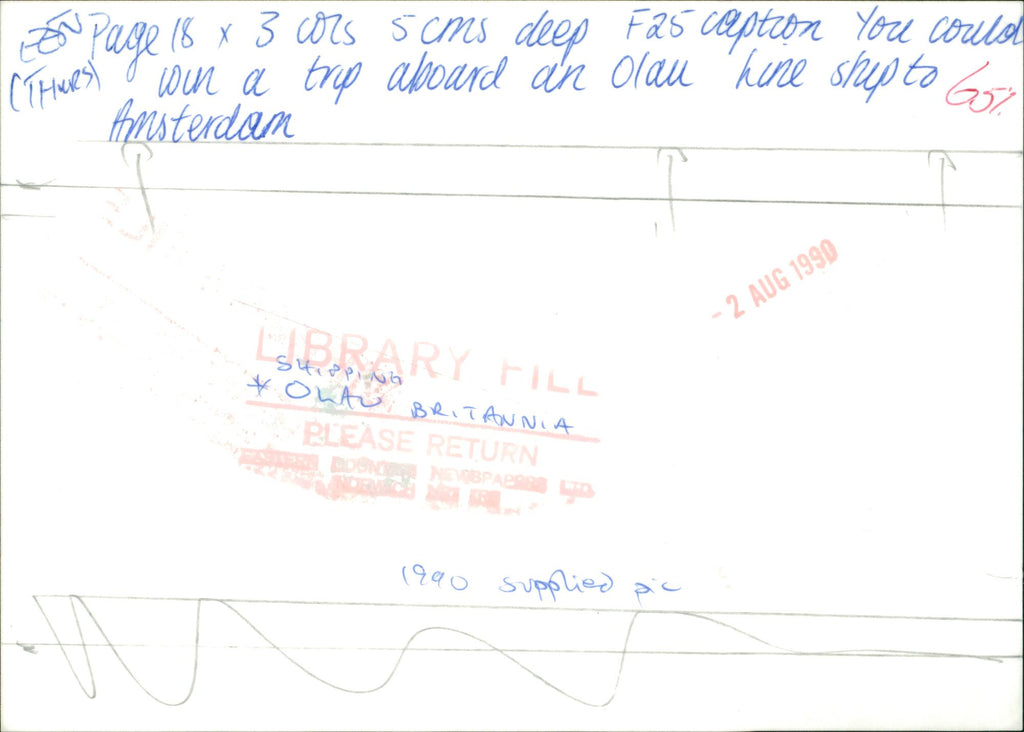 EEN Page 18 x 3 cols 5 cms deep F25 caption You could
(THURS) win a trip aboard an Olau Line ship to 65%
Amsterdam
- 2 AUG 1990
LIBRARY FILE
SHIPPING
* OLAU BRITANNIA
PLEASE RETURN
EASTERN COUNTIES NEWSPAPERS LTD
NORWICH
1990 supplied pic